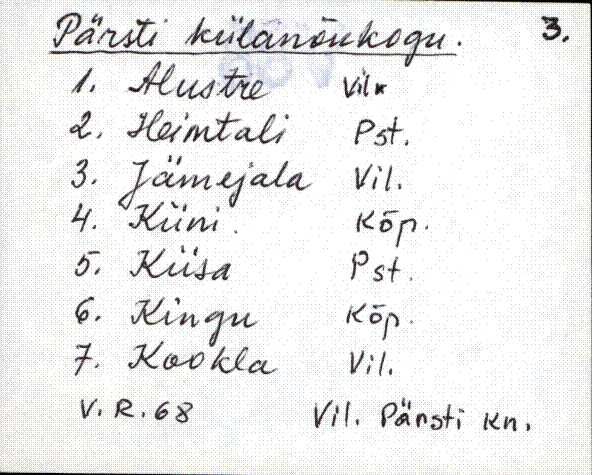 Pärsti külanõukogu. 3.
1. Alustre Vil.
2. Heimtali Pst.
3. Jämejala Vil.
4. Küni. Kõp.
5. Küsa Pst.
6. Kingu Kõp.
7. Kookla Vil.
V.R.68 Vil. Pärsti kn.